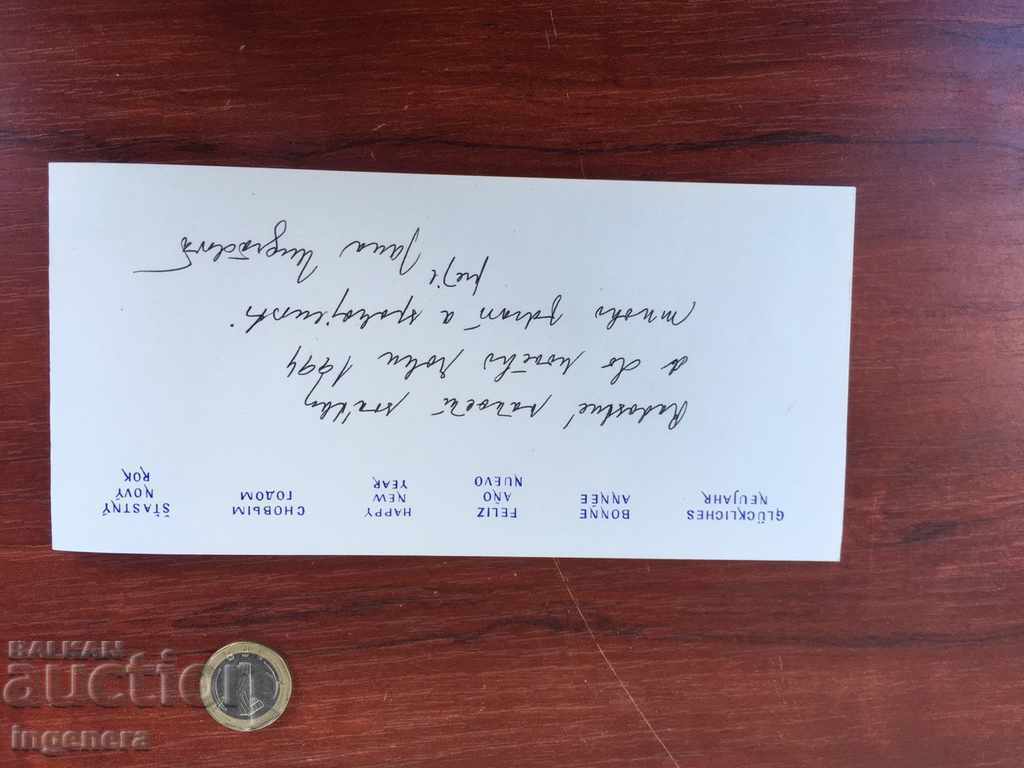 GLÜCKLICHES
NEUJAHR
BONNE
ANNÉE
FELIZ
AÑO
NUEVO
HAPPY
NEW
YEAR
С НОВЫМ
ГОДОМ
ŠŤASTNÝ
NOVÝ
ROK
Radostné vánoční svátky
a do nového roku 1994
mnoho zdraví a spokojenosti
přeje Jana
BALKAN
auction
ingenera